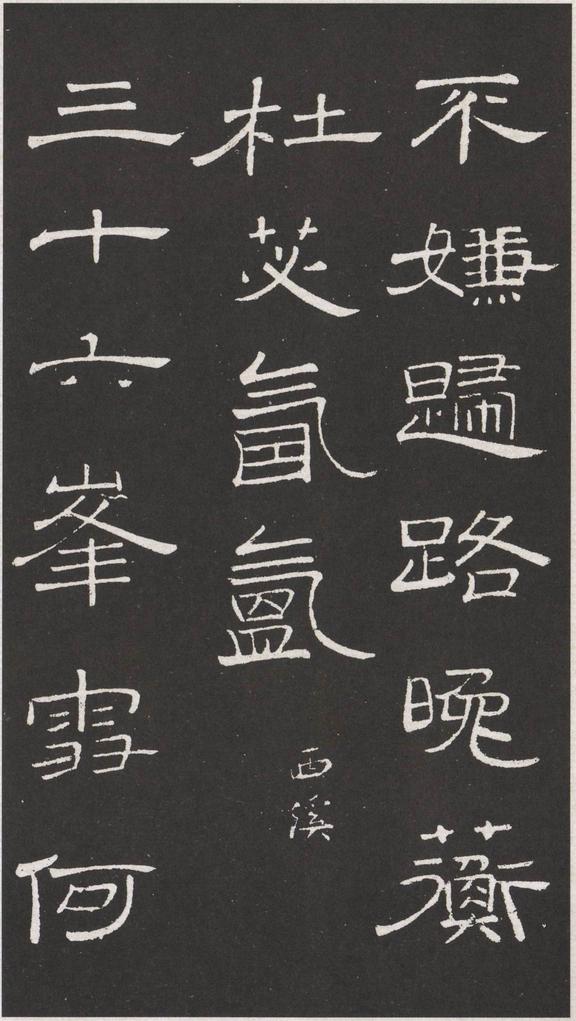 不嫌歸路晚蘅
杜苾氤氳 西溪
三十六峯雪何